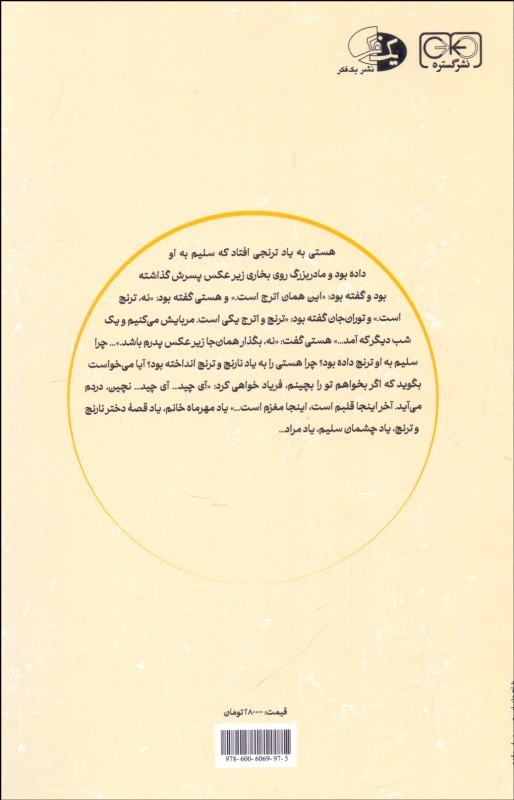 نشر گستره
یک فکر
نشر یک‌فکر
هستی به یاد ترنجی افتاد که سلیم به او
داده بود و مادربزرگ روی بخاری زیر عکس پسرش گذاشته
بود و گفته بود: «این همان اترج است.» و هستی گفته بود: «نه، ترنج
است.» و توران‌جان گفته بود: «ترنج و اترج یکی است. مربایش می‌کنیم و یک
شب دیگر که آمد...» هستی گفت: «نه، بگذار همان‌جا زیر عکس پدرم باشد.»... چرا
سلیم به او ترنج داده بود؟ چرا هستی را به یاد نارنج و ترنج انداخته بود؟ آیا می‌خواست
بگوید که اگر بخواهم تو را بچینم، فریاد خواهی کرد: «آی چید... آی چید... نچین، دردم
می‌آید. آخر اینجا قلبم است، اینجا مغزم است...» یاد مهرماه خانم، یاد قصهٔ دختر نارنج
و ترنج، یاد چشمان سلیم، یاد مراد...
قیمت: ۲۸۰۰۰۰ تومان
978-600-6069-97-5